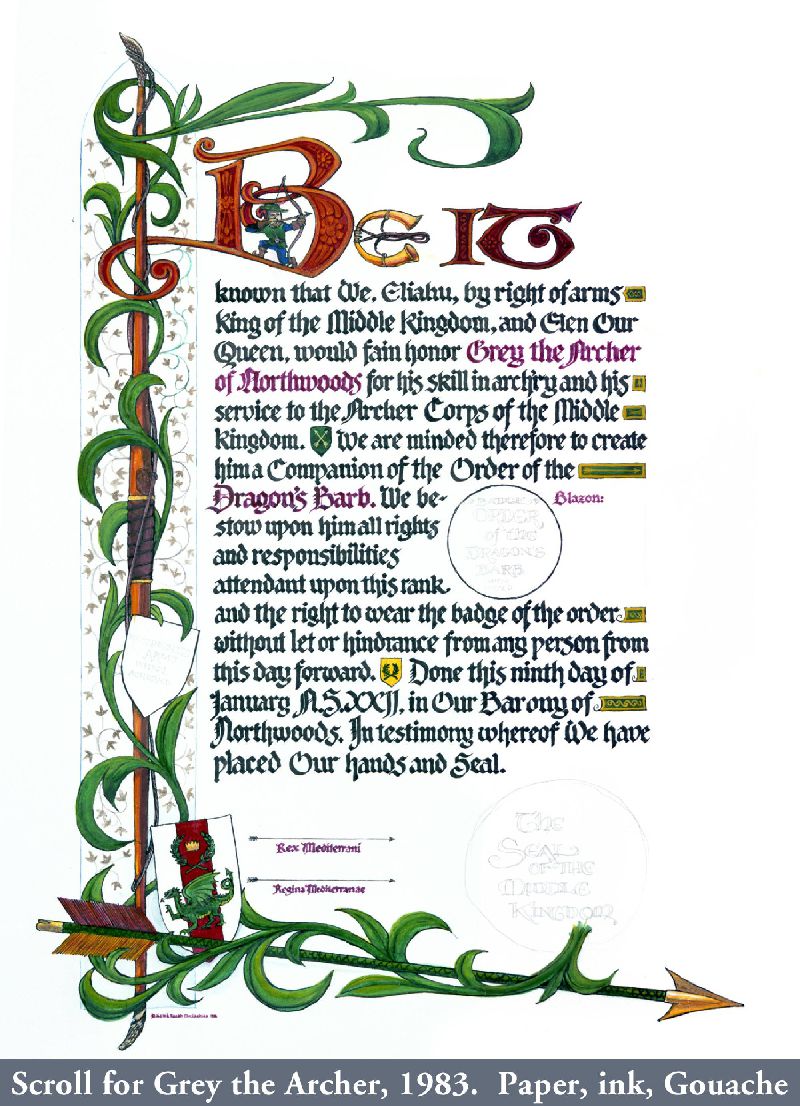 Be it
known that We, Eliahu, by right of arms
King of the Middle Kingdom, and Elen Our
Queen, would fain honor Grey the Archer
of Northwoods for his skill in arch'ry and his
service to the Archer Corps of the Middle
Kingdom. We are minded therefore to create
him a Companion of the Order of the
Dragon's Barb. We be-
Blazon:
stow upon him all rights
and responsibilities
attendant upon this rank
ORDER
of the
DRAGON'S
BARB
and the right to wear the badge of the order
without let or hindrance from any person from
this day forward. Done this ninth day of
January A.S.XXII, in Our Barony of
Northwoods. In testimony whereof We have
placed Our hands and Seal.
Rex Mediterrani
Regina Mediterranae
The
Seal
of the
Middle
Kingdom
Scroll for Grey the Archer, 1983. Paper, ink, Gouache